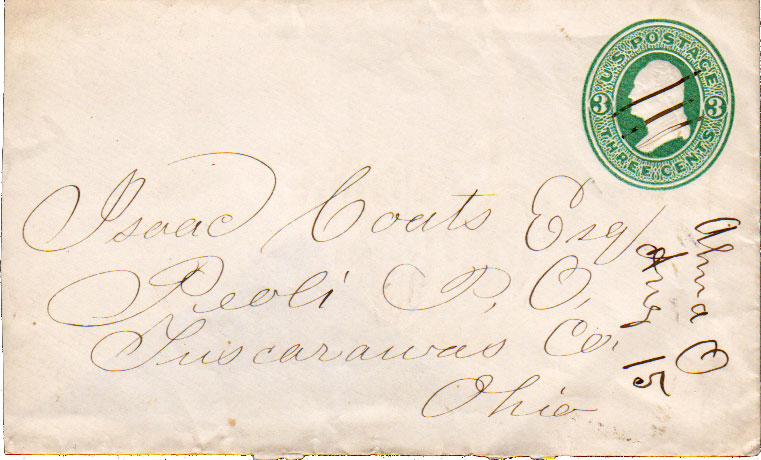 U.S. POSTAGE
3 3
THREE CENTS
Isaac Coats Esq/
Peoli P, O,
Tuscarawas Co.
Ohio
Alma O
Aug 15